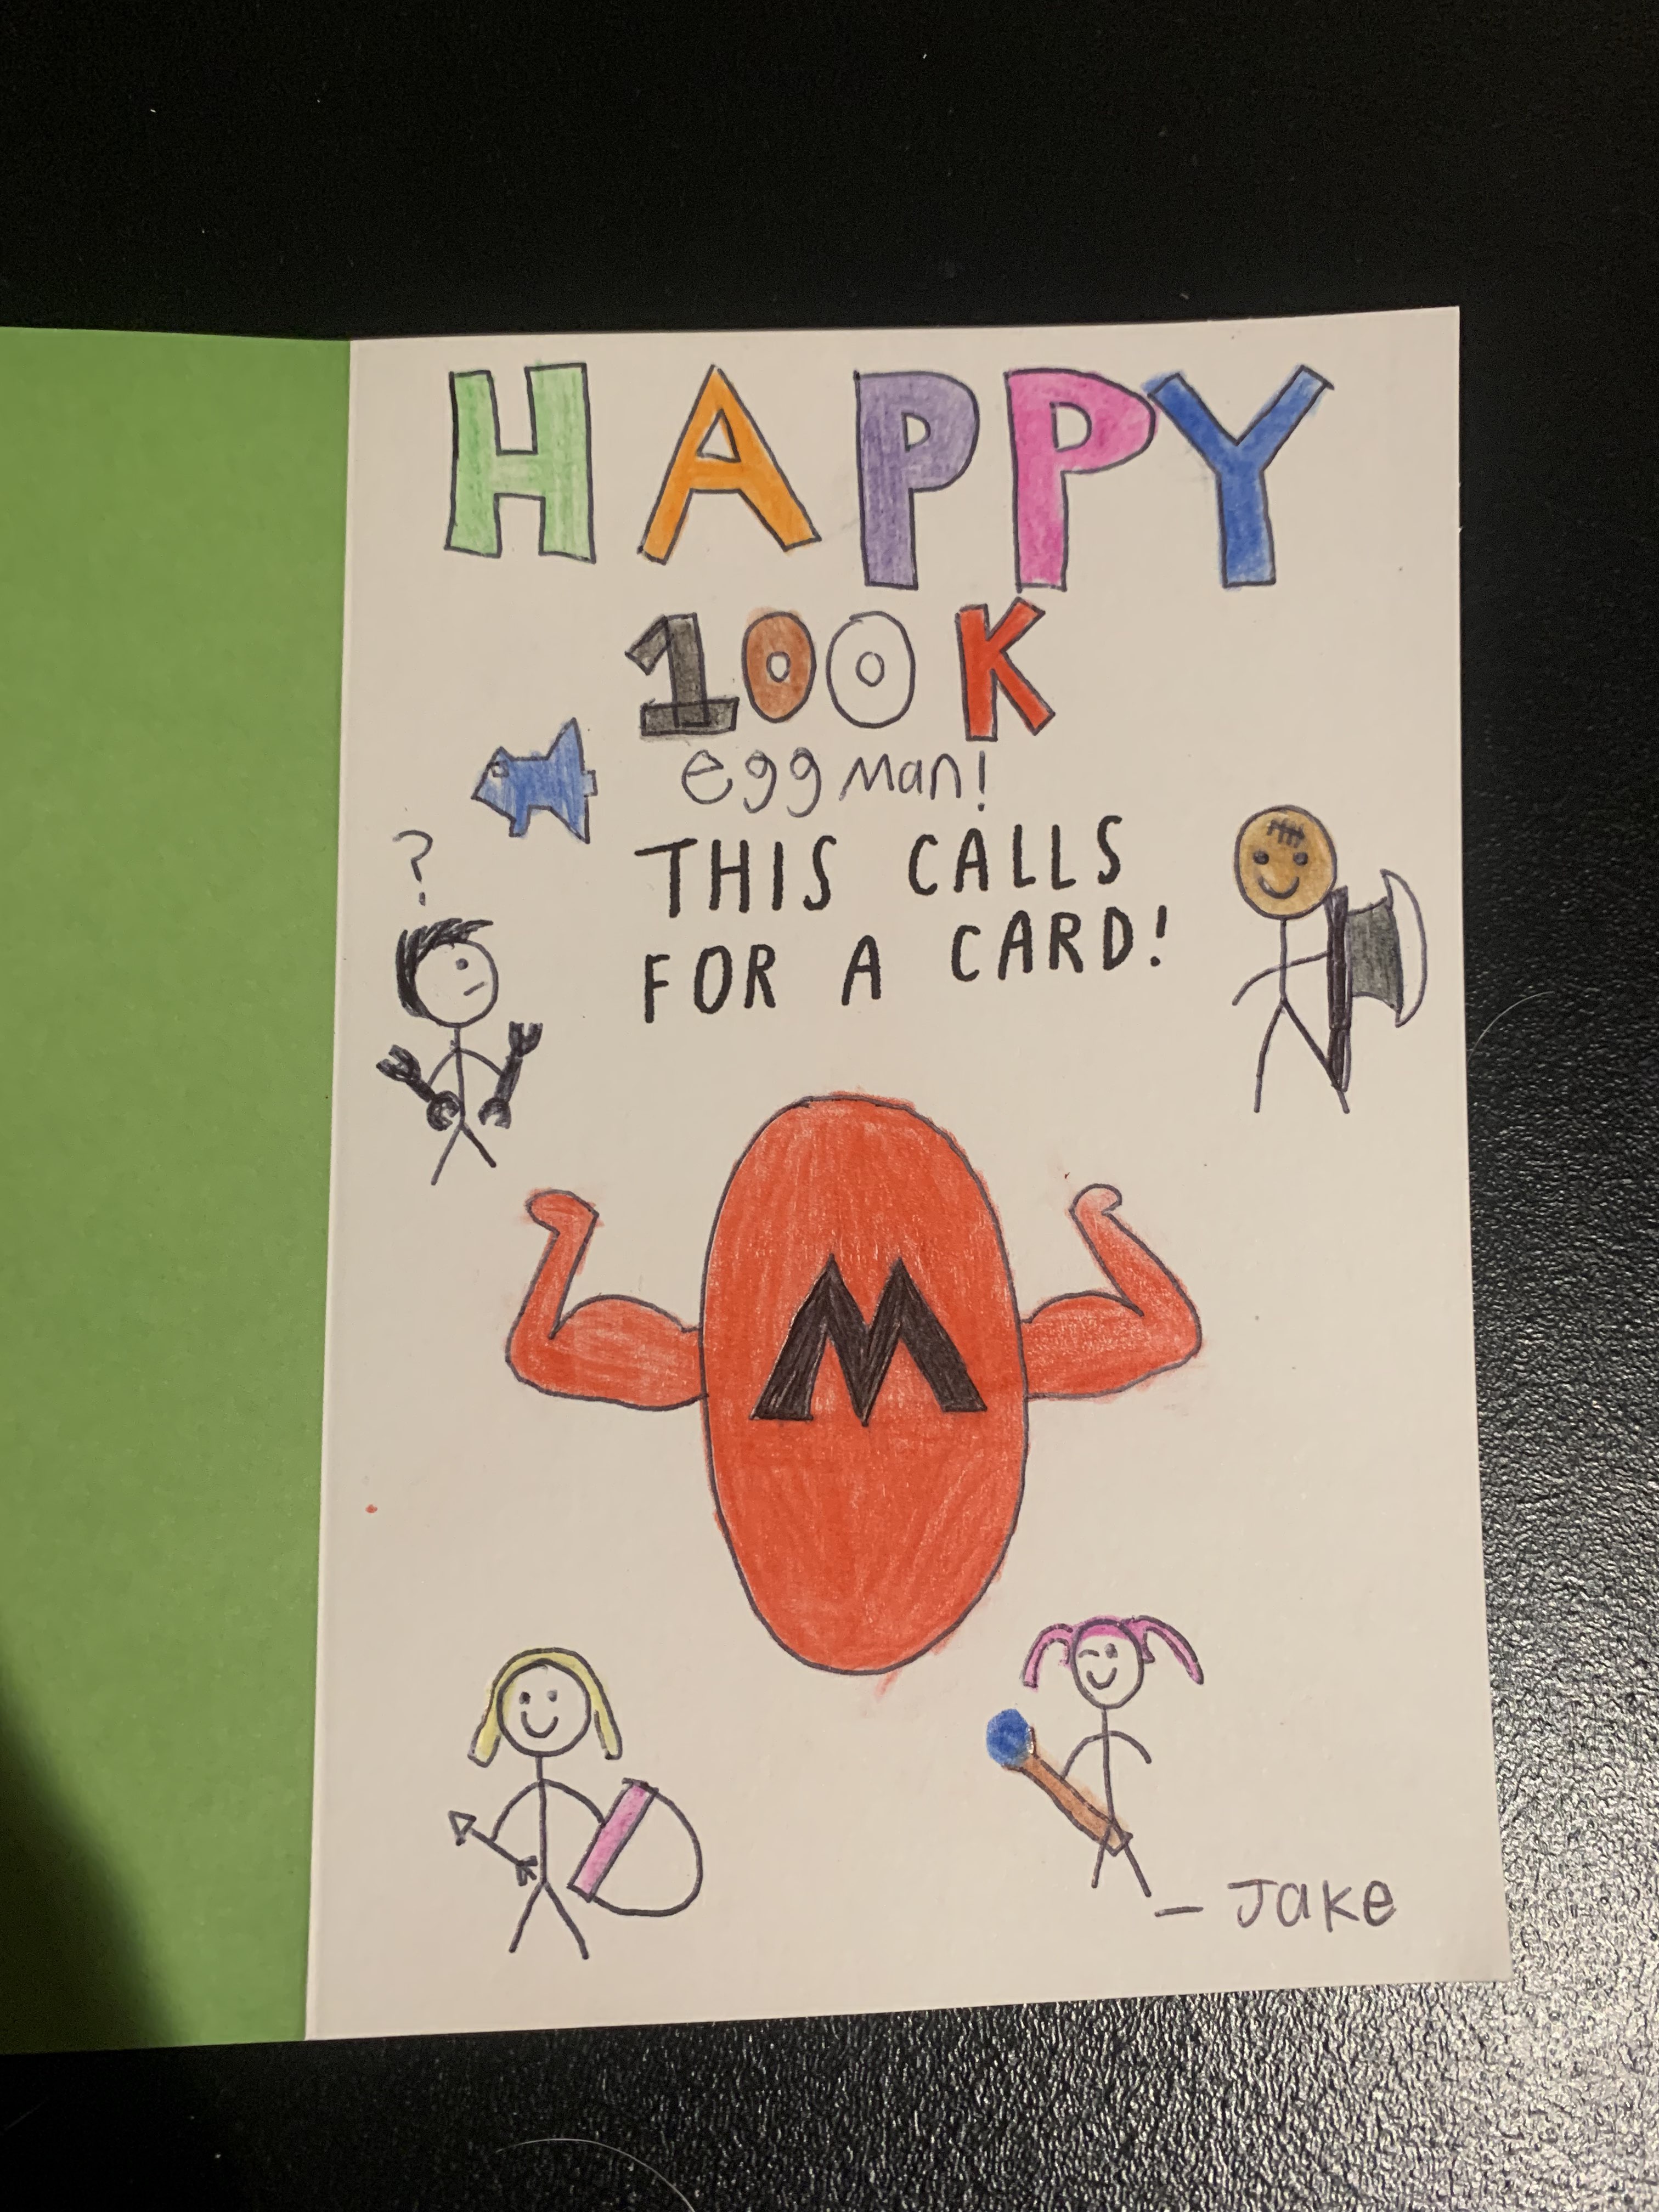 HAPPY
100K
egg man!
THIS CALLS
FOR A CARD!
?
M
- Jake